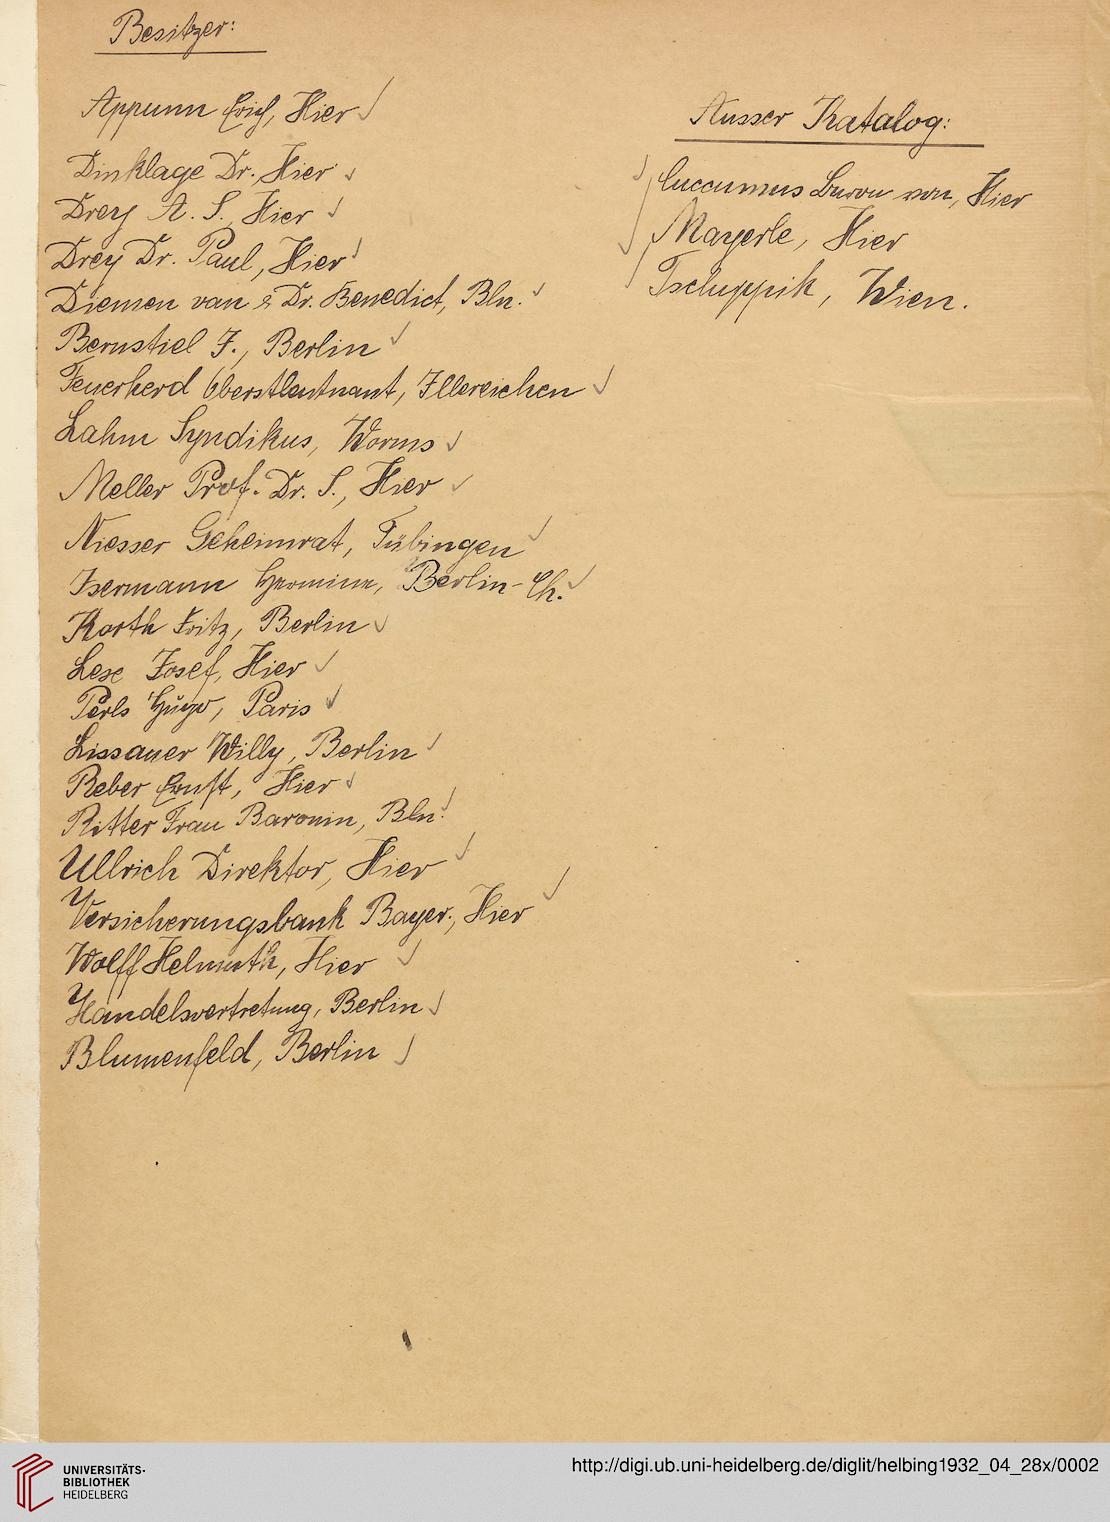 Besitzer:
Appunn Erich, Hier
Dinklage Dr. Hier
Drey A. S. Hier
Drey Dr. Paul, Hier
Diemen van & Dr. Benedict, Bln.
Bernstiel J., Berlin
Feuerherd Oberstleutnant, Illereichen
Lahm Syndikus, Worms
Meller Prof. Dr. S., Hier
Niesser Geheimrat, Tübingen
Isermann Hermine, Berlin-Ch.
Korth Fritz, Berlin
Lese Josef, Hier
Perls Hugo, Paris
Lissauer Willy, Berlin
Reber Ernst, Hier
Ritter Frau Baronin, Bln.
Ullrich Direktor, Hier
Versicherungsbank Bayer., Hier
Wolff Helmuth, Hier
Handelsvertretung, Berlin
Blumenfeld, Berlin
Ausser Katalog:
Cuccumus Baron von, Hier
Mayerle, Hier
Tschuppik, Wien.
UNIVERSITÄTS-
BIBLIOTHEK
HEIDELBERG
http://digi.ub.uni-heidelberg.de/diglit/helbing1932_04_28x/0002